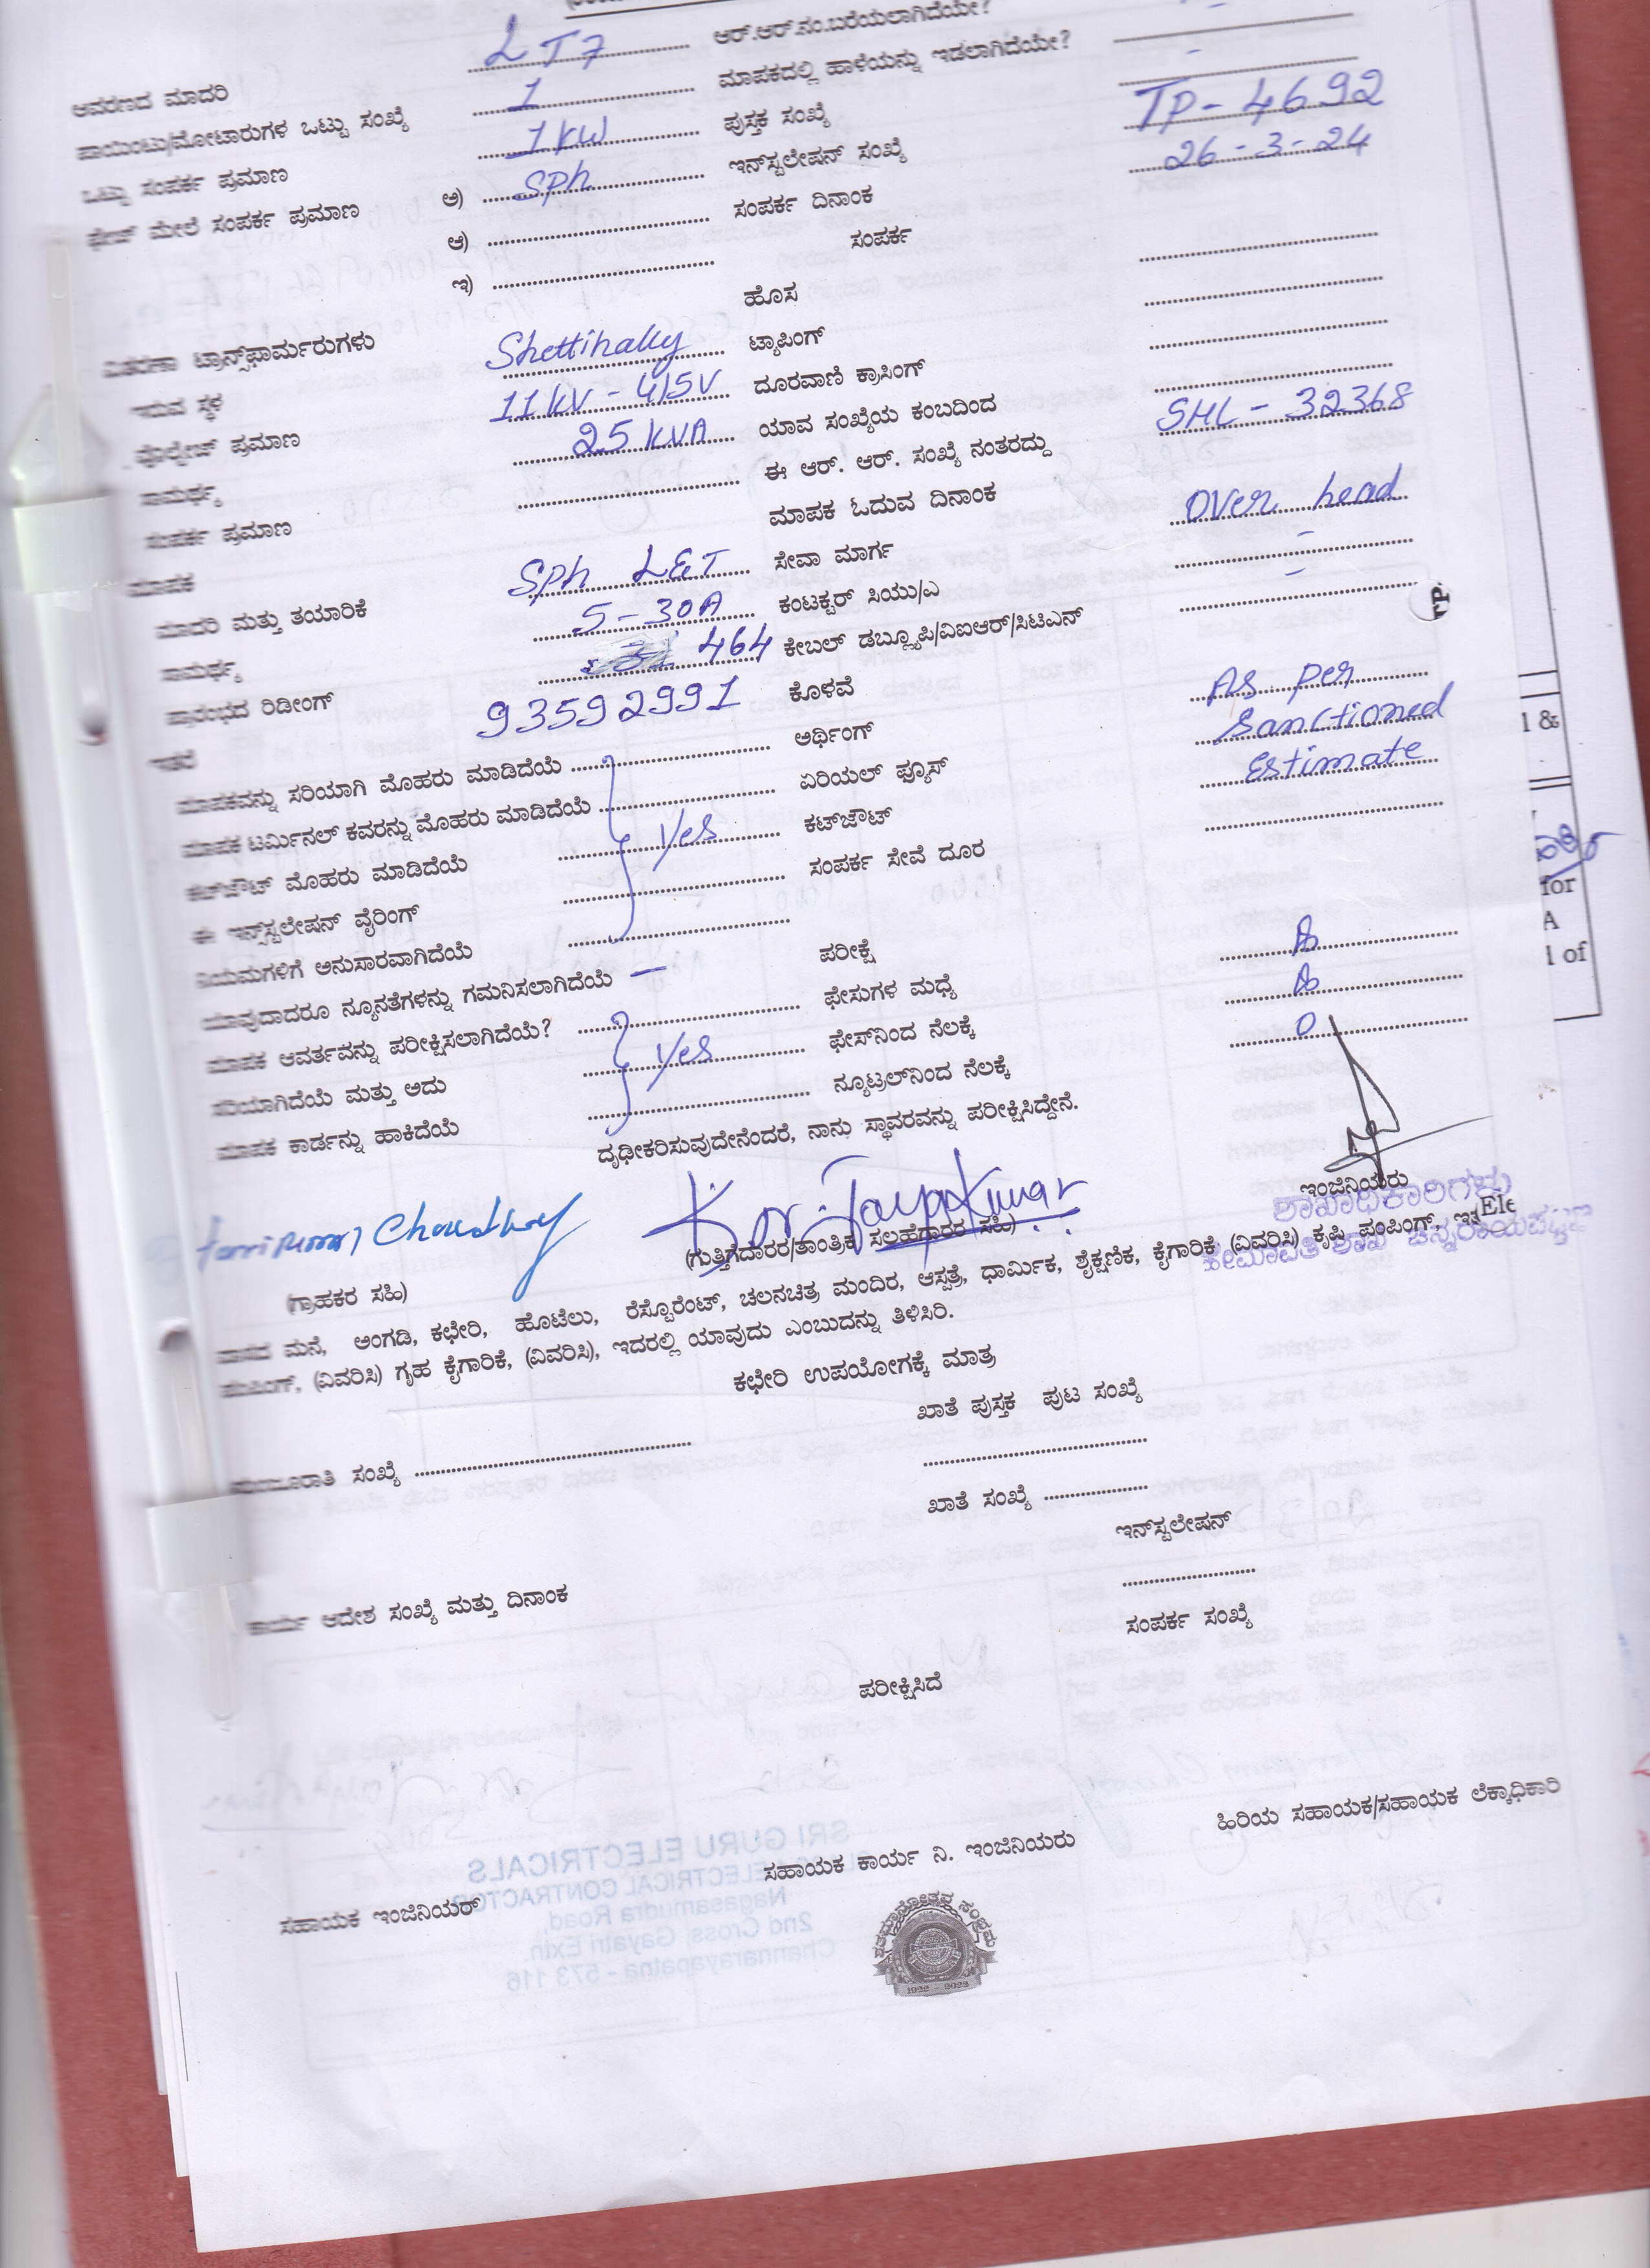 LT7 ಆರ್.ಆರ್.ನಂ.ಬರೆಯಲಾಗಿದೆಯೇ? -
ಆವರಣದ ಮಾದರಿ 1 ಮಾಪಕದಲ್ಲಿ ಹಾಳೆಯನ್ನು ಇಡಲಾಗಿದೆಯೇ? -
ಪಾಯಿಂಟು/ಮೋಟಾರುಗಳ ಒಟ್ಟು ಸಂಖ್ಯೆ 1KW ಪುಸ್ತಕ ಸಂಖ್ಯೆ TP-4692
ಒಟ್ಟು ಸಂಪರ್ಕ ಪ್ರಮಾಣ ಅ) SPh ಇನ್‌ಸ್ಟಲೇಷನ್ ಸಂಖ್ಯೆ 26-3-24
ಫೇಜ್ ಮೇಲೆ ಸಂಪರ್ಕ ಪ್ರಮಾಣ ಆ) ಸಂಪರ್ಕ ದಿನಾಂಕ
ಇ) ಸಂಪರ್ಕ
ಹೊಸ
ವಿತರಣಾ ಟ್ರಾನ್ಸ್‌ಫಾರ್ಮರುಗಳು Shettihally ಟ್ಯಾಪಿಂಗ್
ಇರುವ ಸ್ಥಳ 11KV-415V ದೂರವಾಣಿ ಕ್ರಾಸಿಂಗ್
ವೊಲ್ಟೇಜ್ ಪ್ರಮಾಣ 25KVA ಯಾವ ಸಂಖ್ಯೆಯ ಕಂಬದಿಂದ SHL-32368
ಸಾಮರ್ಥ್ಯ ಈ ಆರ್. ಆರ್. ಸಂಖ್ಯೆ ನಂತರದ್ದು
ಸಂಪರ್ಕ ಪ್ರಮಾಣ ಮಾಪಕ ಓದುವ ದಿನಾಂಕ Over head
ಮಾಪಕ SPh L&T ಸೇವಾ ಮಾರ್ಗ -
ಮಾದರಿ ಮತ್ತು ತಯಾರಿಕೆ 5-30A ಕಂಟಕ್ಟರ್ ಸಿಯು/ಎ -
ಸಾಮರ್ಥ್ಯ 464 ಕೇಬಲ್ ಡಬ್ಲ್ಯೂಪಿ/ವಿಐಆರ್/ಸಿಟಿಎನ್
ಪ್ರಾರಂಭದ ರಿಡೀಂಗ್ 93592991 ಕೊಳವೆ As per
ಇತರೆ ಅರ್ಥಿಂಗ್ Sanctioned
ಮಾಪಕವನ್ನು ಸರಿಯಾಗಿ ಮೊಹರು ಮಾಡಿದೆಯೆ ಏರಿಯಲ್ ಫ್ಯೂಸ್ Estimate
ಮಾಪಕ ಟರ್ಮಿನಲ್ ಕವರನ್ನು ಮೊಹರು ಮಾಡಿದೆಯೆ Yes ಕಟ್‌ಔಟ್
ಕಟ್‌ಔಟ್ ಮೊಹರು ಮಾಡಿದೆಯೆ ಸಂಪರ್ಕ ಸೇವೆ ದೂರ
ಈ ಇನ್ಸ್‌ಟಲೇಷನ್ ವೈರಿಂಗ್
ನಿಯಮಗಳಿಗೆ ಅನುಸಾರವಾಗಿದೆಯೆ ಪರೀಕ್ಷೆ
ಯಾವುದಾದರೂ ನ್ಯೂನತೆಗಳನ್ನು ಗಮನಿಸಲಾಗಿದೆಯೆ - ಫೇಸುಗಳ ಮಧ್ಯೆ
ಮಾಪಕ ಆವರ್ತವನ್ನು ಪರೀಕ್ಷಿಸಲಾಗಿದೆಯೆ? Yes ಫೇಸ್‌ನಿಂದ ನೆಲಕ್ಕೆ 0
ಸರಿಯಾಗಿದೆಯೆ ಮತ್ತು ಅದು ನ್ಯೂಟ್ರಲ್‌ನಿಂದ ನೆಲಕ್ಕೆ
ಮಾಪಕ ಕಾರ್ಡನ್ನು ಹಾಕಿದೆಯೆ ದೃಢೀಕರಿಸುವುದೇನೆಂದರೆ, ನಾನು ಸ್ಥಾವರವನ್ನು ಪರೀಕ್ಷಿಸಿದ್ದೇನೆ.
Choudhury Jayakumar ಇಂಜಿನಿಯರು
ಶಾಖಾಧಿಕಾರಿಗಳು
(ಗ್ರಾಹಕರ ಸಹಿ) (ಗುತ್ತಿಗೆದಾರರ/ತಾಂತ್ರಿಕ ಸಲಹೆಗಾರರ ಸಹಿ)
ಹೇಮಾವತಿ ಶಾಖೆ ಚನ್ನರಾಯಪಟ್ಟಣ
ವಾಸದ ಮನೆ, ಅಂಗಡಿ, ಕಛೇರಿ, ಹೊಟೆಲು, ರೆಸ್ಟೊರೆಂಟ್, ಚಲನಚಿತ್ರ ಮಂದಿರ, ಆಸ್ಪತ್ರೆ, ಧಾರ್ಮಿಕ, ಶೈಕ್ಷಣಿಕ, ಕೈಗಾರಿಕೆ (ವಿವರಿಸಿ) ಕೃಷಿ ಪಂಪಿಂಗ್, ಇತ್ರ
ಪಂಪಿಂಗ್, (ವಿವರಿಸಿ) ಗೃಹ ಕೈಗಾರಿಕೆ, (ವಿವರಿಸಿ), ಇದರಲ್ಲಿ ಯಾವುದು ಎಂಬುದನ್ನು ತಿಳಿಸಿರಿ.
ಕಛೇರಿ ಉಪಯೋಗಕ್ಕೆ ಮಾತ್ರ
ಖಾತೆ ಪುಸ್ತಕ ಪುಟ ಸಂಖ್ಯೆ
ಮಂಜೂರಾತಿ ಸಂಖ್ಯೆ
ಖಾತೆ ಸಂಖ್ಯೆ
ಇನ್‌ಸ್ಟಲೇಷನ್
ಕಾರ್ಯ ಆದೇಶ ಸಂಖ್ಯೆ ಮತ್ತು ದಿನಾಂಕ
ಸಂಪರ್ಕ ಸಂಖ್ಯೆ
ಪರೀಕ್ಷಿಸಿದೆ
ಹಿರಿಯ ಸಹಾಯಕ/ಸಹಾಯಕ ಲೆಕ್ಕಾಧಿಕಾರಿ
ಸಹಾಯಕ ಕಾರ್ಯ ನಿ. ಇಂಜಿನಿಯರು
ಸಹಾಯಕ ಇಂಜಿನಿಯರ್
SRI GURU ELECTRICALS
ELECTRICAL CONTRACTOR
Nagasamudra Road,
2nd Cross, Gayatri Extn,
Channarayapatna - 573 116
ಶತಮಾನೋತ್ಸವ ಸಂಭ್ರಮ
1922 - 2022